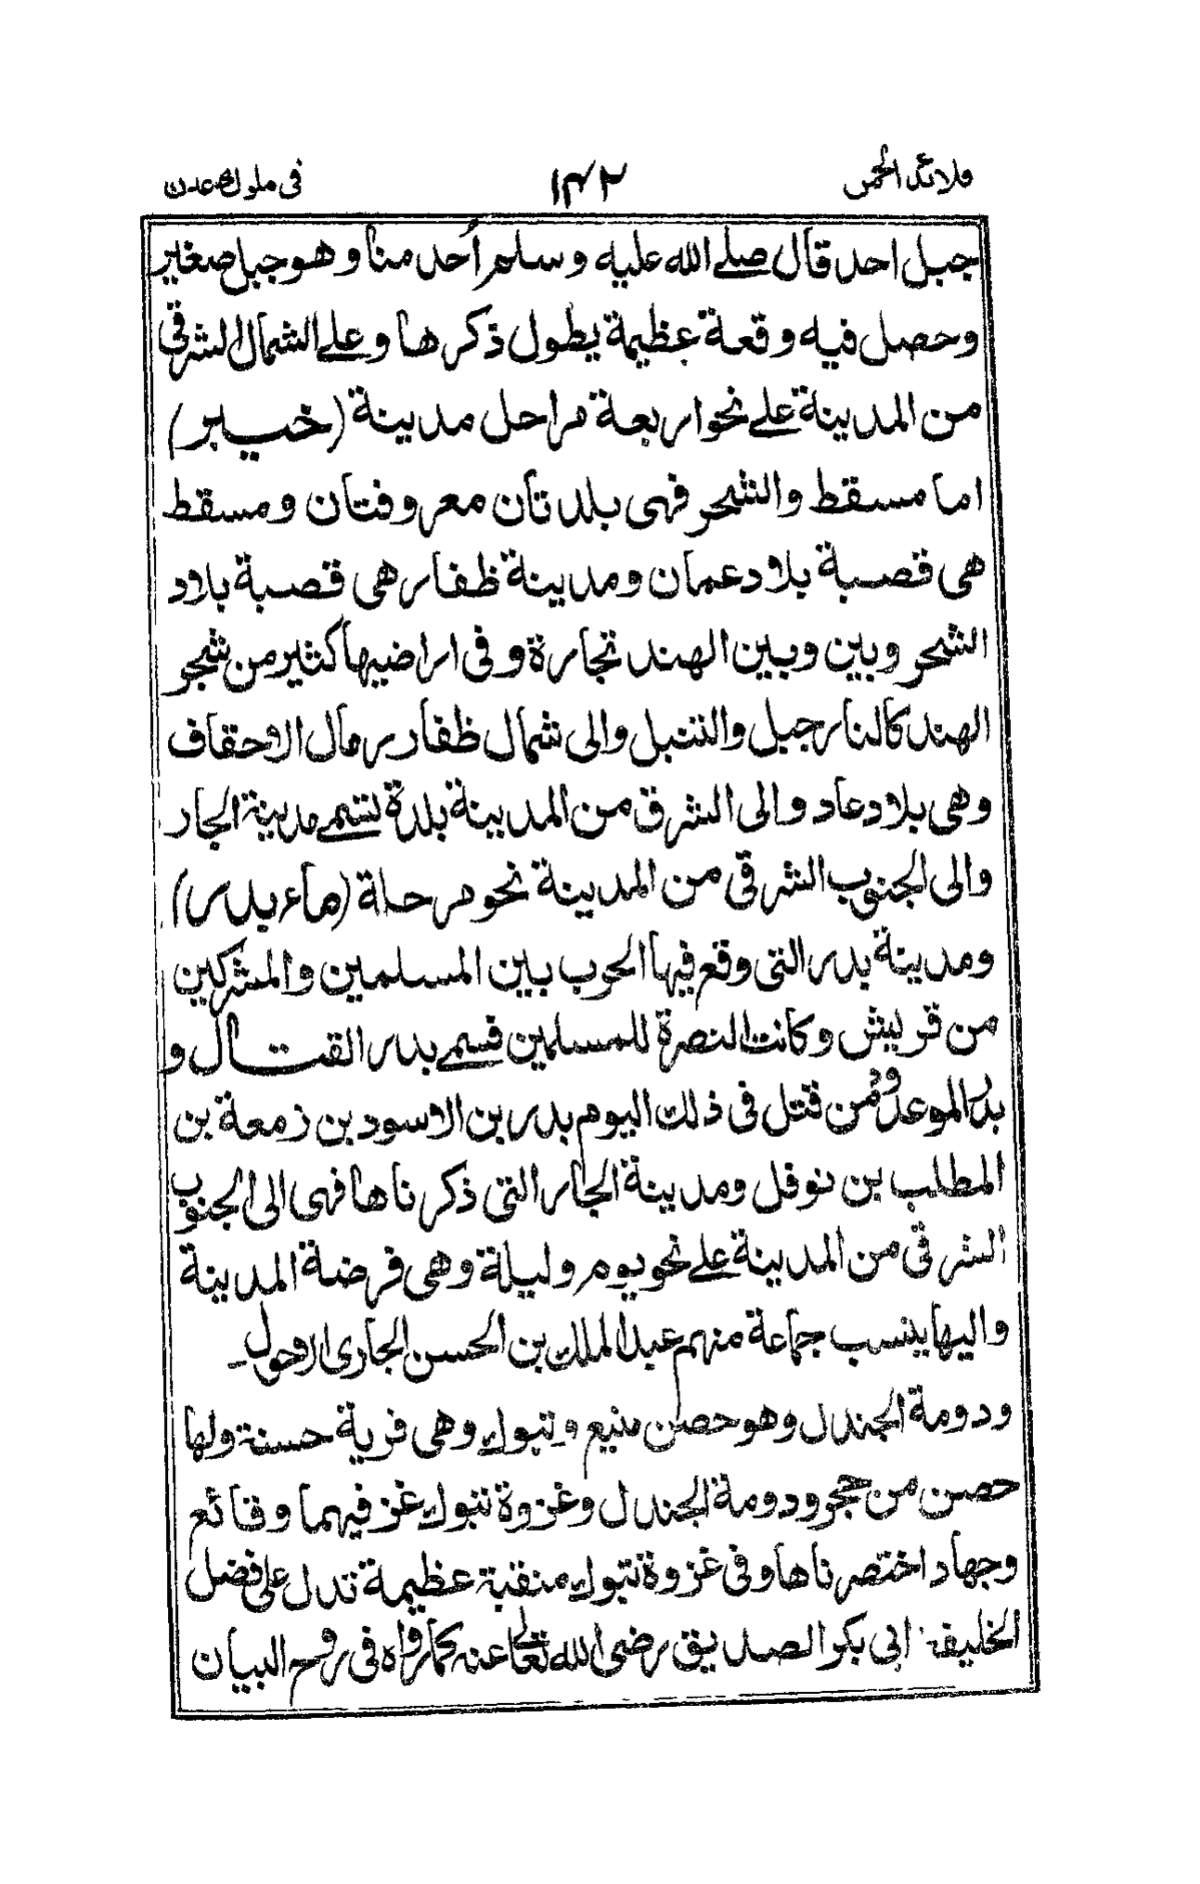 قلائد الجمن ١٤٢ فى ملوك عدن
جبل احد قال صلے الله عليه وسلم أحد منا وهو جبل صغير
وحصل فيه وقعة عظيمة يطول ذكرها وعلے الشمال الشرقى
من المدينة علے نحو اربعة مراحل مدينة (خيبر)
اما مسقط والشحر فهى بلدتان معروفتان ومسقط
هى قصبة بلاد عمان ومدينة ظفار هى قصبة بلاد
الشحر وبين وبين الهند تجارة وفى اراضيها كثير من شجر
الهند كالنارجيل والتنبل والى شمال ظفار رمال الاحقاف
وهى بلاد عاد والى الشرق من المدينة بلدة تسمے مدينة الجار
والى الجنوب الشرقى من المدينة نحو مرحلة (ماء بدر)
ومدينة بدر التى وقع فيها الحرب بين المسلمين والمشركين
من قريش وكانت النصرة للمسلمين فسمے بدر القتال و
بدر الموعد وممن قتل فى ذلك اليوم بدر بن الاسود بن زمعة بن
المطلب بن نوفل ومدينة الجار التى ذكرناها فهى الى الجنوب
الشرقى من المدينة علے نحو يوم وليلة وهى فرضة المدينة
واليها ينسب جماعة منهم عبد الملك بن الحسن الجارى الاحول
ودومة الجندل وهو حصن منيع وتبوك وهى قرية حسنة ولها
حصن من حجر ودومة الجندل وغزوة تبوك غز فيهما وقائع
وجهاد اختصرناها وفى غزوة تبوك منقبة عظيمة تدل على فضل
الخليفة ابى بكر الصديق رضى الله تعالى عنه كما رواه فى روح البيان